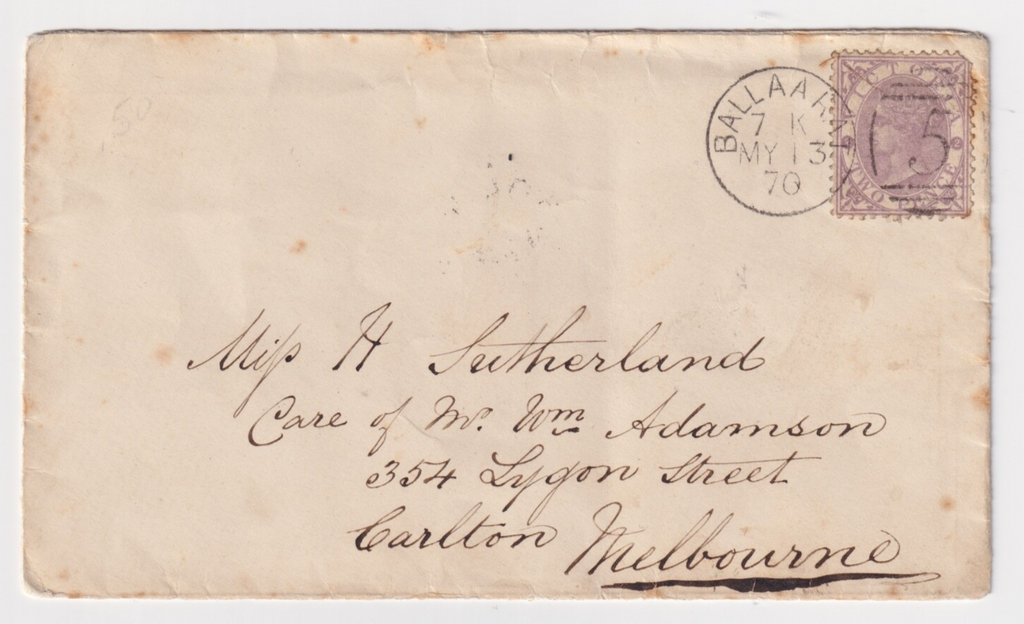 50
BALLAARAT
7 K
MY 13
70
VICTORIA
5
TWO PENCE
Miss H Sutherland
Care of Mr. Wm Adamson
354 Lygon Street
Carlton Melbourne